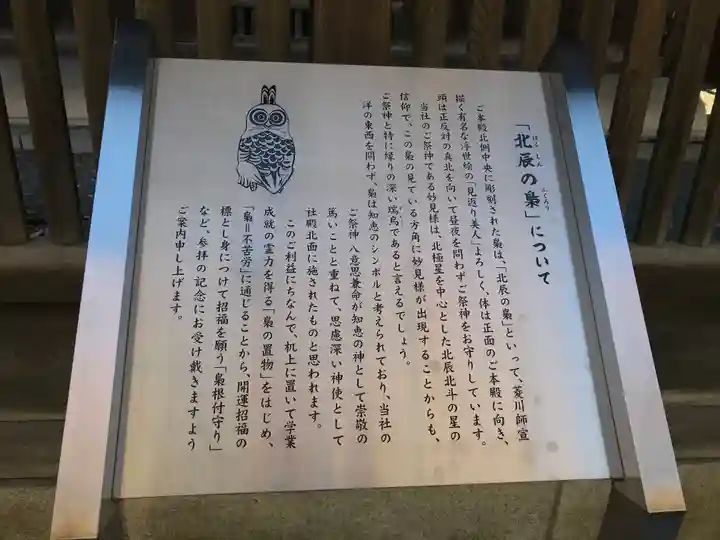 「北辰の梟」について
ほく しん ふくろう
ご本殿北側中央に彫刻された梟は、「北辰の梟」といって、菱川師宣
描く有名な浮世絵の「見返り美人」よろしく、体は正面のご本殿に向き、
頭は正反対の真北を向いて昼夜を問わずご祭神をお守りしています。
当社のご祭神である妙見様は、北極星を中心とした北辰北斗の星の
信仰で、この梟の見ている方角に妙見様が出現することからも、
ご祭神と特に縁りの深い瑞鳥であると言えるでしょう。
洋の東西を問わず、梟は知恵のシンボルと考えられており、当社の
ご祭神 八意思兼命が知恵の神として崇敬の
篤いことと重ねて、思慮深い神使として
社殿北面に施されたものと思われます。
このご利益にちなんで、机上に置いて学業
成就の霊力を得る「梟の置物」をはじめ、
「梟=不苦労」に通じることから、開運招福の
標とし身につけて招福を願う「梟根付守り」
など、参拝の記念にお受け戴きますよう
ご案内申し上げます。